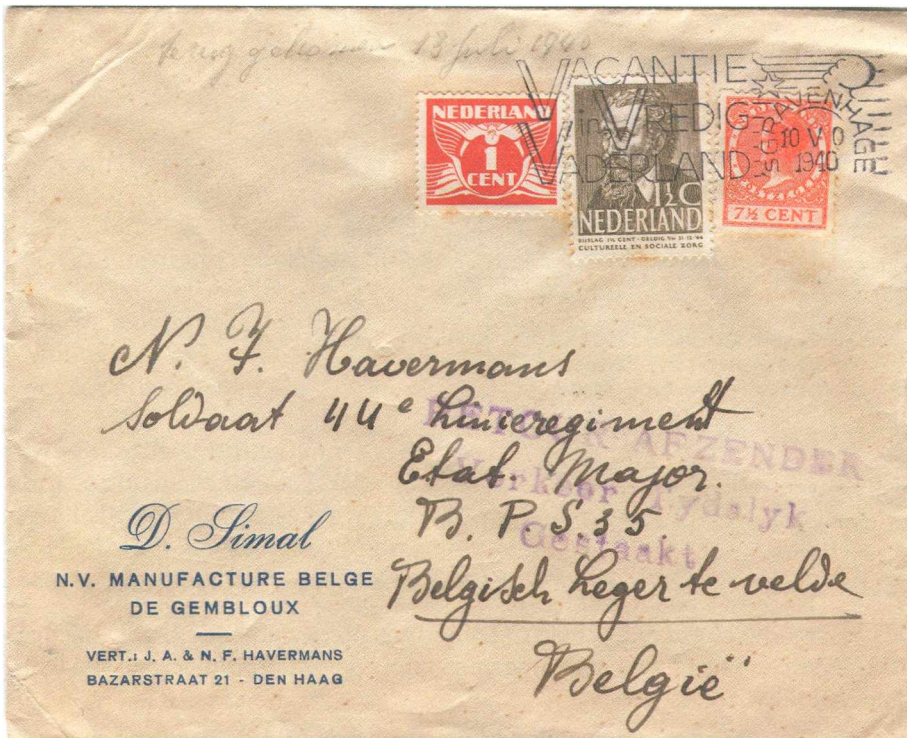 terug gekomen 13 juli 1940
VACANTIE
in VREDIG
VADERLAND
'S-GRAVENHAGE
10 V 0
1940
NEDERLAND
1
CENT
1½C
NEDERLAND
BIJSLAG 1½ CENT - GELDIG T/M 31-12-'44
CULTUREELE EN SOCIALE ZORG
7½ CENT
N. F. Havermans
Soldaat 44e Linieregiment
Etat. Major.
B. P. S. 35.
Belgisch Leger te velde
België
RETOUR AFZENDER
Verkeer Tydelyk
Gestaakt
D. Simal
N.V. MANUFACTURE BELGE
DE GEMBLOUX
VERT.: J. A. & N. F. HAVERMANS
BAZARSTRAAT 21 - DEN HAAG